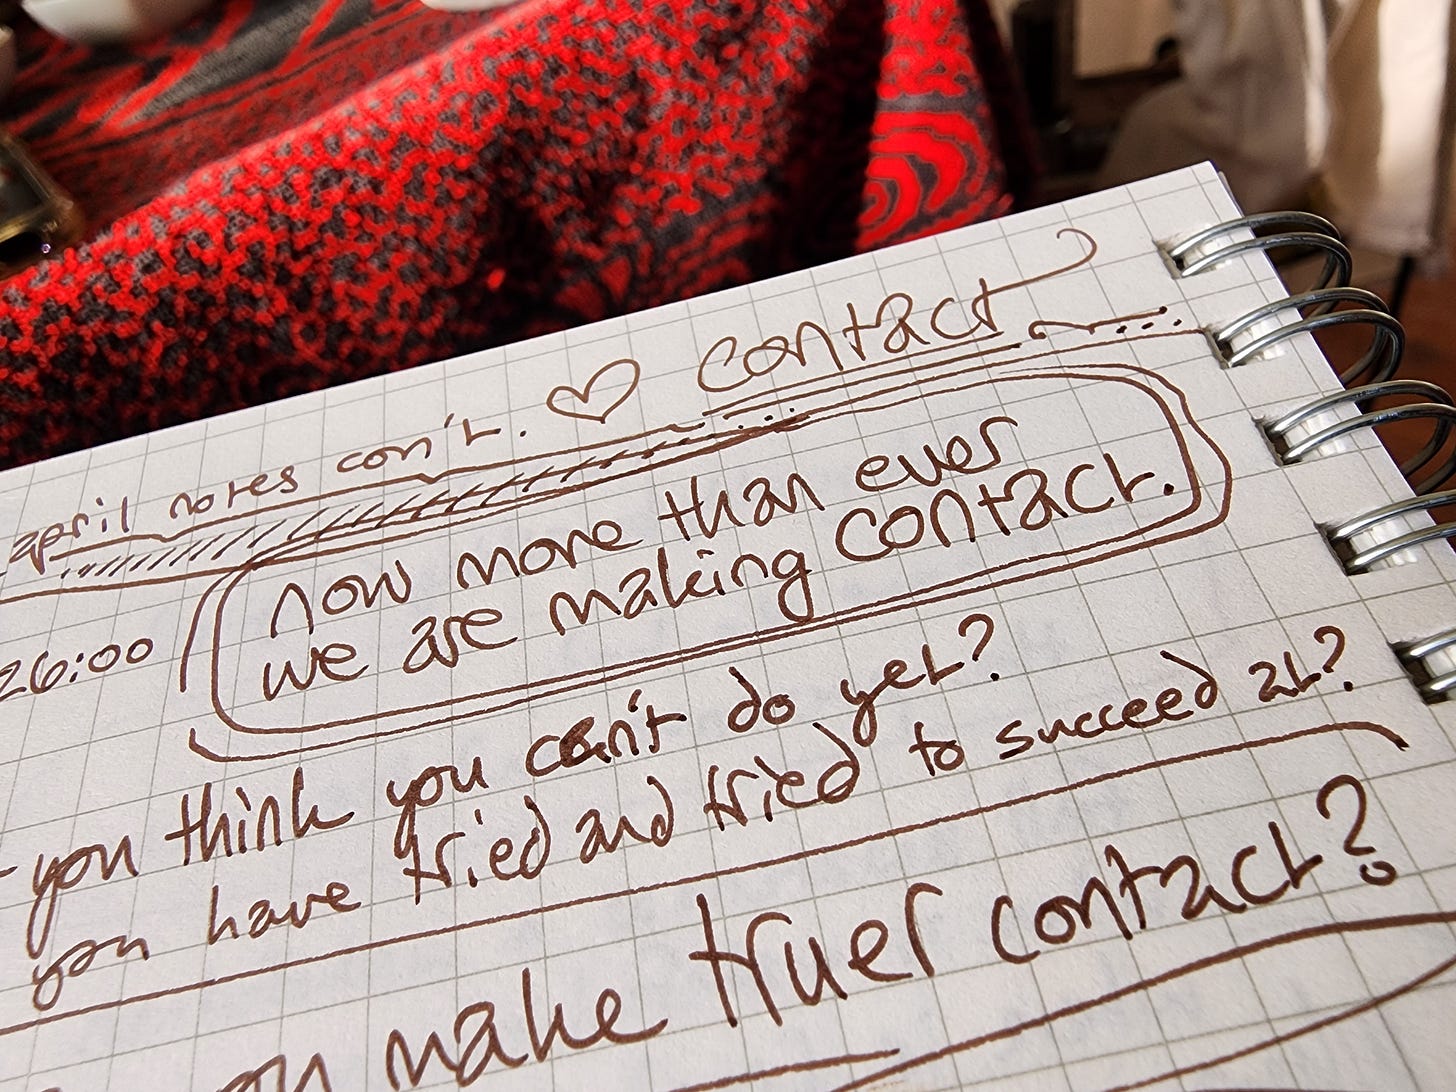 april notes con't. ♡ contact
now more than ever
we are making contact.
26:00
you think you can't do yet?
you have tried and tried to succeed at?
make truer contact?